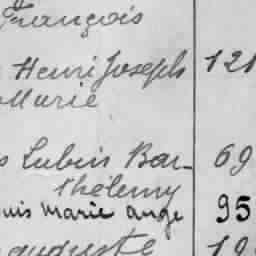 François
Henri Joseph 121
Marie
s Lubin Bar- 69
thélemy
uis Marie ange 95
auguste 19